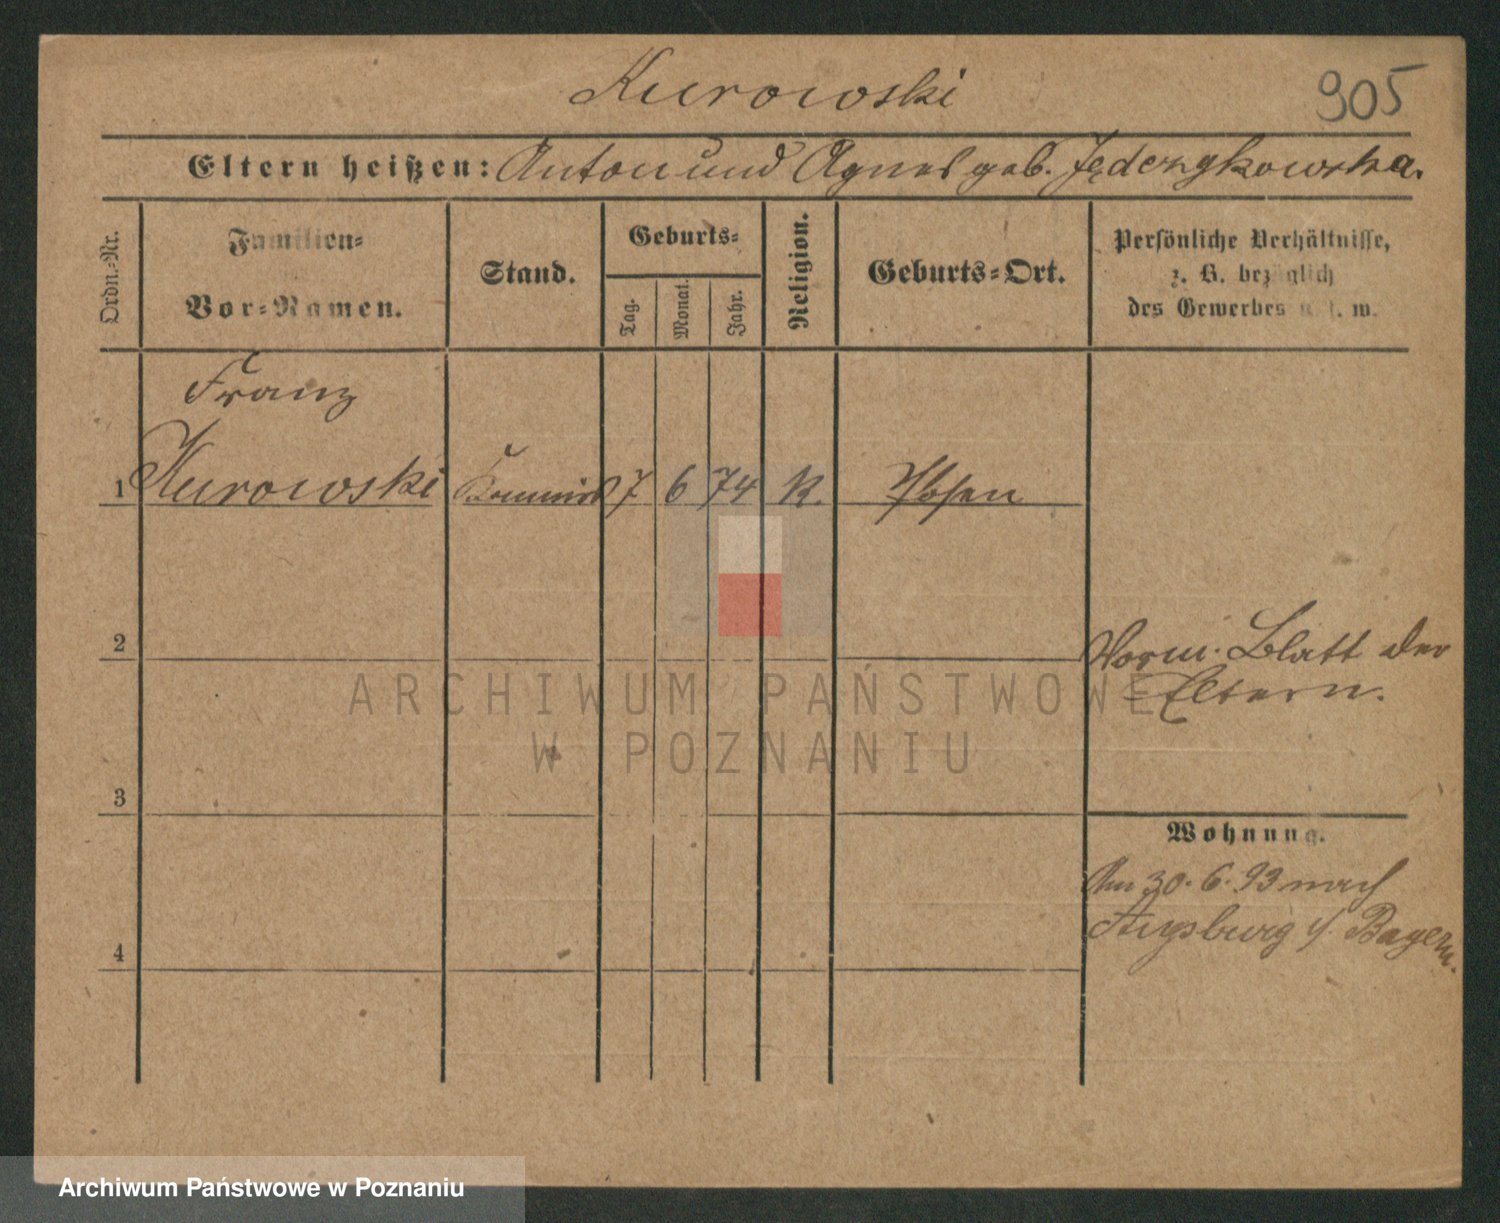 Kurowski
905
Eltern heißen: Anton und Agnes geb. Jędczykowska.
Ordn.-Nr.
Familien-
Vor-Namen.
Stand.
Geburts-
Tag.
Monat.
Jahr.
Religion.
Geburts-Ort.
Persönliche Verhältnisse,
z. B. bezüglich
des Gewerbes u. s. w.
Franz
1 Kurowski Kommis 7 6 74 K. Posen
2
Vorm. Blatt der
Eltern.
ARCHIWUM PAŃSTWOWE
W POZNANIU
3
Wohnung.
Am 30. 6. 93 nach
Augsburg i/ Bayern.
4
Archiwum Państwowe w Poznaniu